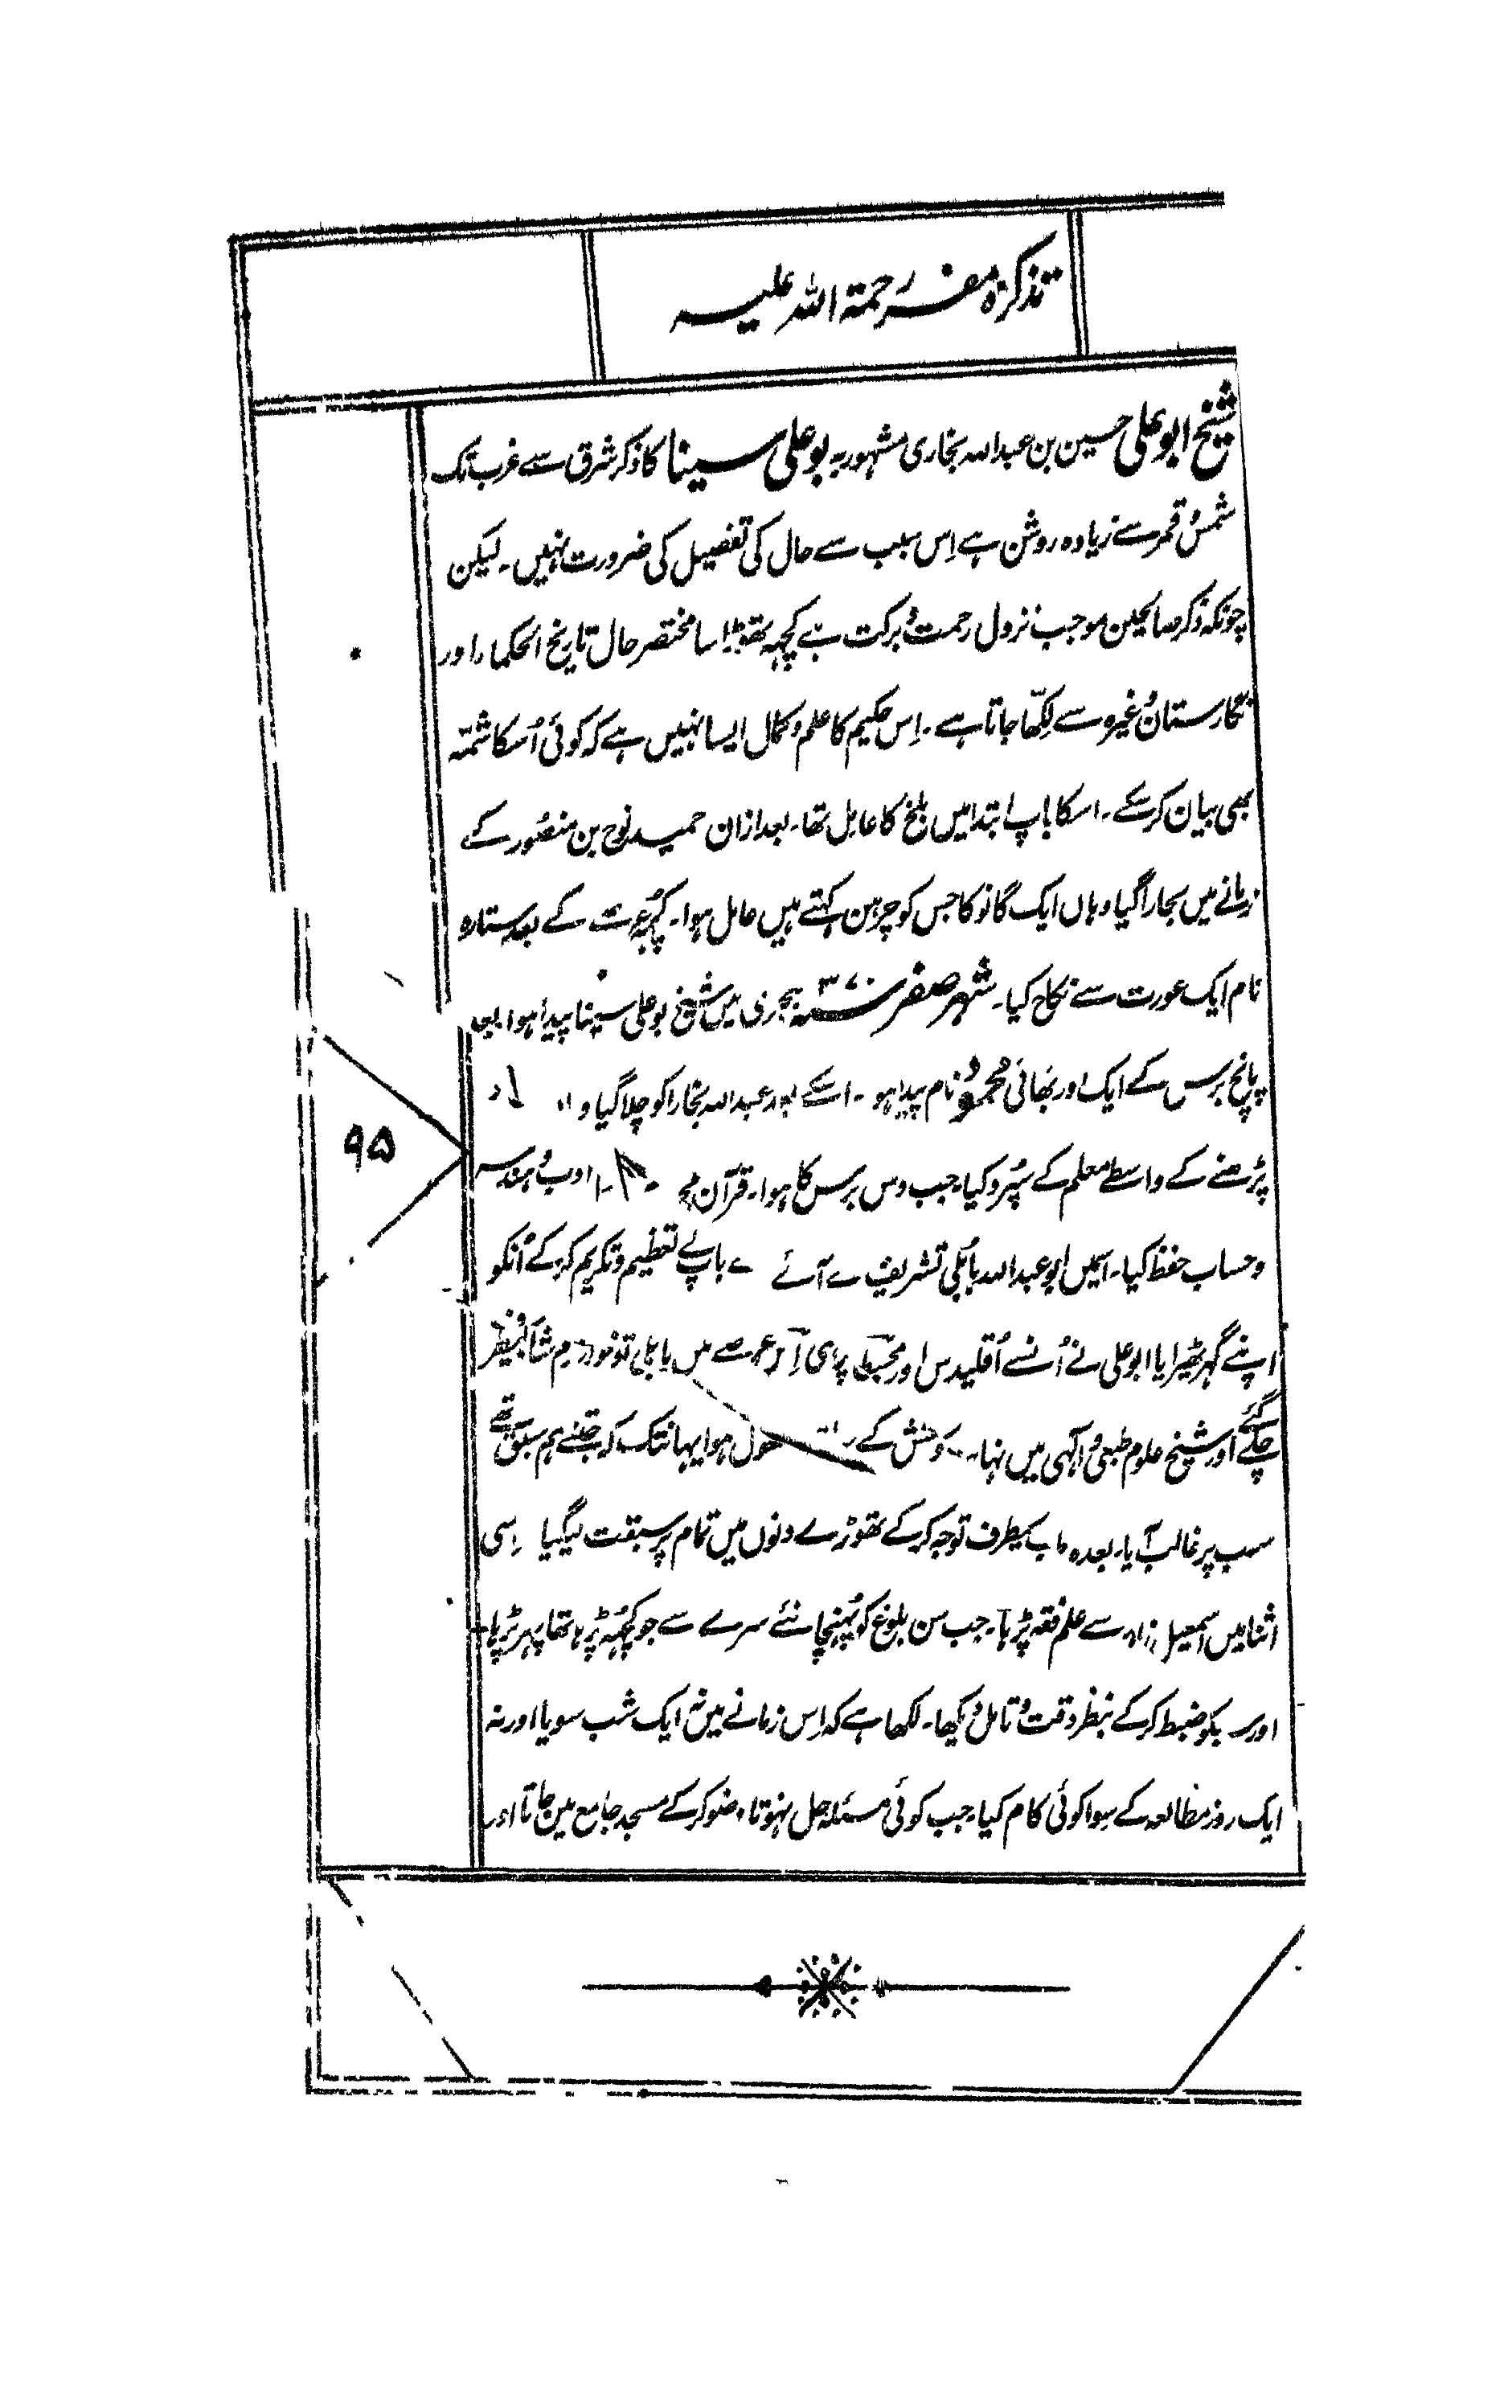 تذکرۂ مفسر رحمۃ اللہ علیہ
شیخ ابو علی حسین بن عبداللہ بخاری مشہور بہ بو علی سینا کا ذکر شرق سے غرب تک
شمس و قمر سے زیادہ روشن ہے اِس سبب سے حال کی تفصیل کی ضرورت نہیں۔ لیکن
چونکہ ذکر صالحین موجب نزول رحمت و برکت ہے کچہہ تھوڑا سا مختصر حال تاریخ الحکماء اور
نگارستان وغیرہ سے لکّھا جاتا ہے۔ اِس حکیم کا علم و کمال ایسا نہیں ہے کہ کوئی اُسکا شمّہ
بھی بیان کر سکے۔ اسکا باپ ابتدا میں بلخ کا عامل تھا۔ بعد ازان حمید نوح بن منصُور کے
زمانے میں بخارا گیا وہاں ایک گانو کا جس کو چرہن کہتے ہیں عامل ہوا۔ کچہہ عرصے کے بعد ستارہ
نام ایک عورت سے نکاح کیا۔ شہر صفر ۳۷۰ سنہ ہجری میں شیخ بو علی سینا پیدا ہوا بعد
پانچ برس کے ایک اور بھائی محمُود نام پیدا ہو ۔ اسکے بعد عبداللہ بخارا کو چلا گیا و
پڑھنے کے واسطے معلم کے سپُرد کیا۔ جب دس برس کا ہوا۔ قرآن ادب و ہندسہ
و حساب حفظ کیا۔ اسمیں ابو عبداللہ تشریف لے آئے باپ نے تعظیم و تکریم کر کے اُنکو
اپنے گہر ٹھیرایا ابو علی نے اُنسے اُقلیدس اور مجسطی پڑہی اِس عرصے میں تو خوارزم شاہ کیطرف
چلے گئے اور شیخ علوم طبعی و الٰہی میں کوشش کے ہوا یہانتک کہ جتنے ہم سبق تھے
سب پر غالب آیا۔ بعدہ طب کیطرف توجہ کر کے تھوڑے دنوں میں تمام پر سبقت لیگیا اِسی
اثنا میں اسمعیل زاہد سے علم فقہ پڑہا۔ جب سن بلوغ کو پُہنچا نئے سرے سے جو کچُہہ پڑہا تھا پہر پڑہا
اور سبکو ضبط کر کے بنظر دقت و تامل دیکھا۔ لکھا ہے کہ اِس زمانے میں نہ ایک شب سویا اور نہ
ایک روز مطالعہ کے سوا کوئی کام کیا۔ جب کوئی مسئلہ حل نہوتا وضو کر کے مسجد جامع میں جاتا اور
۹۵